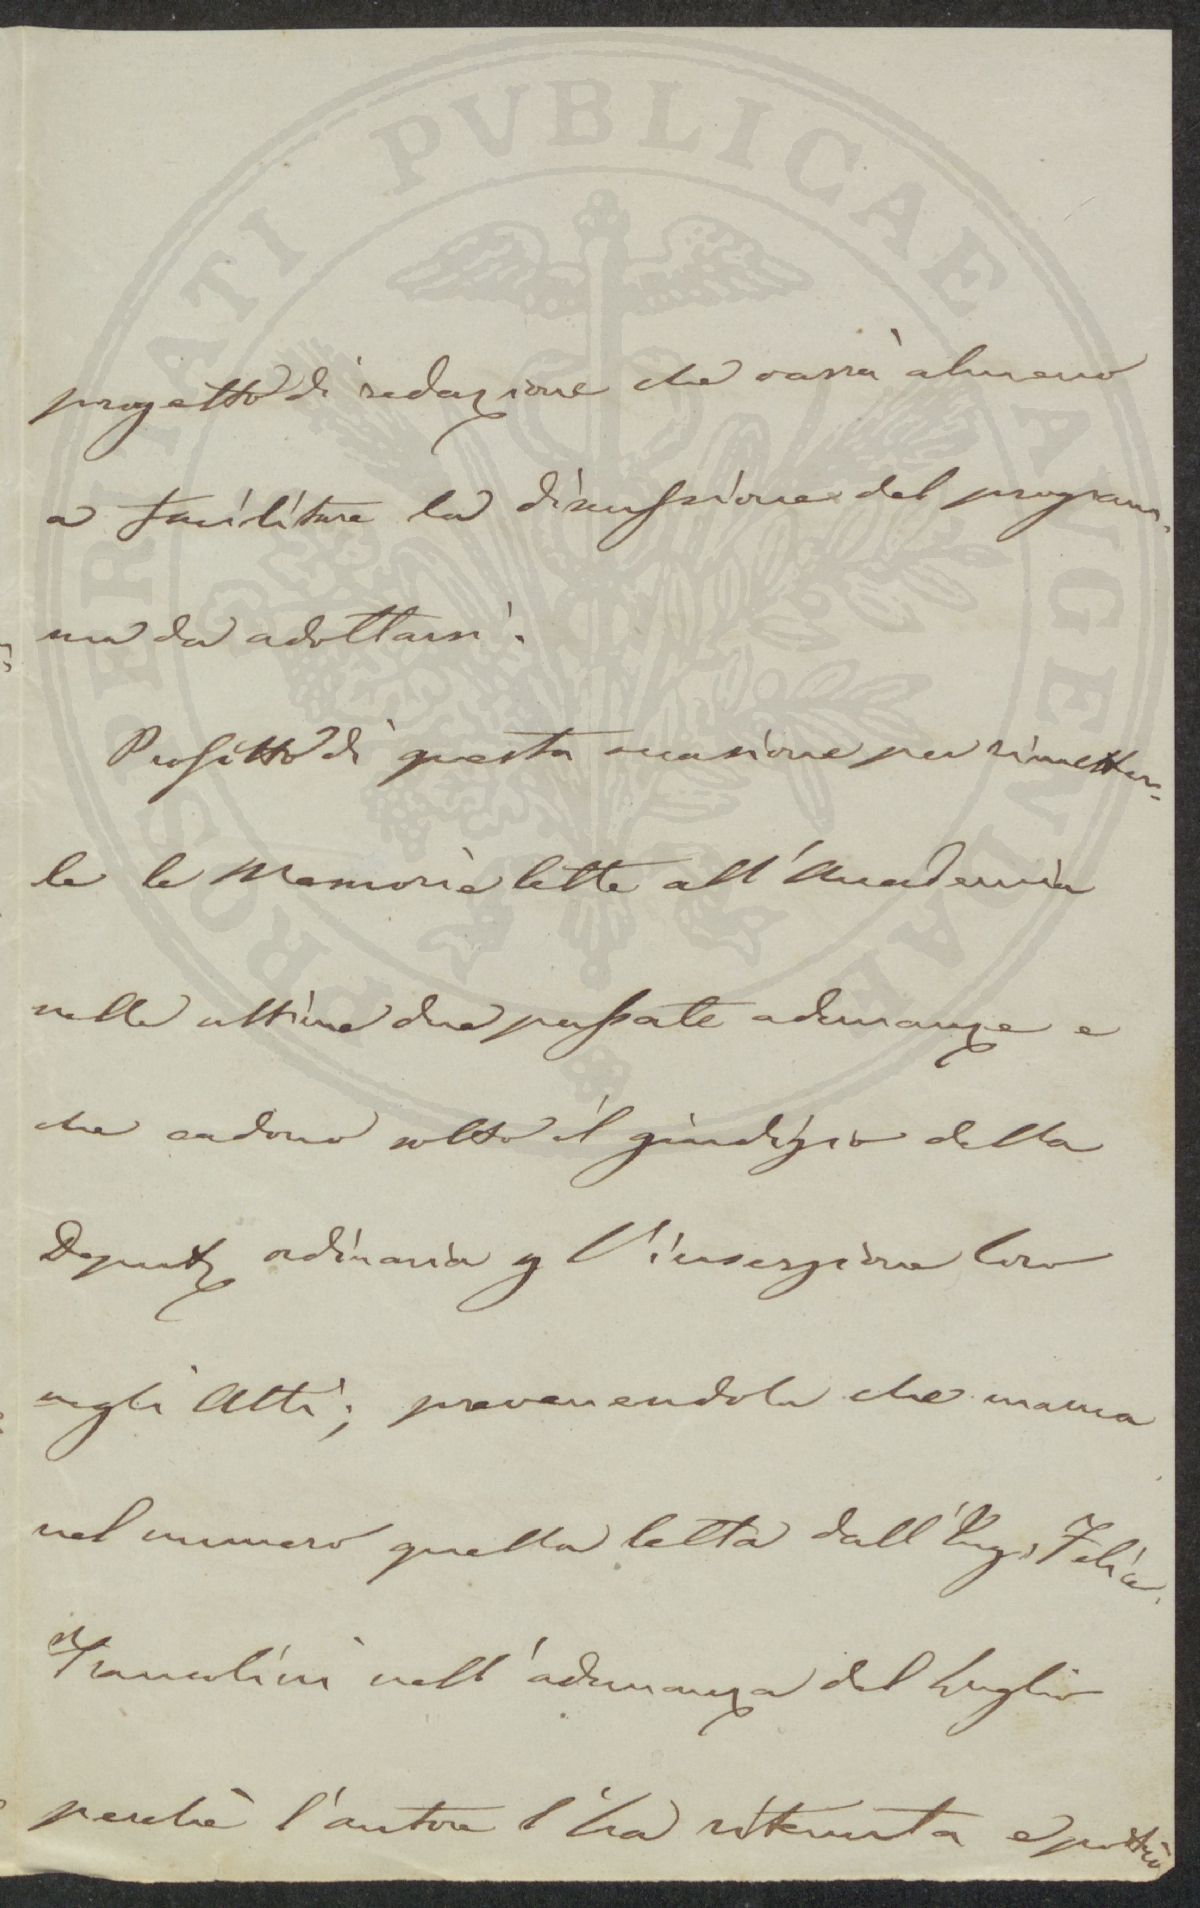 PROSPERITATI PVBLICAE AVGENDAE
progetto di redazione che varrà almeno
a facilitare la discussione del program-
ma da adottarsi.
Profitto di questa occasione per rimetter-
le le Memorie lette all'Accademia
nelle ultime due passate adunanze e
che cadono sotto il giudizio della
Deputz ordinaria p l'inserzione loro
negli Atti; prevenendola che manca
nel numero quella letta dall'Ing. Felice
Francolini nell'adunanza del Luglio
perché l'autore l'ha ritenuta e potrà